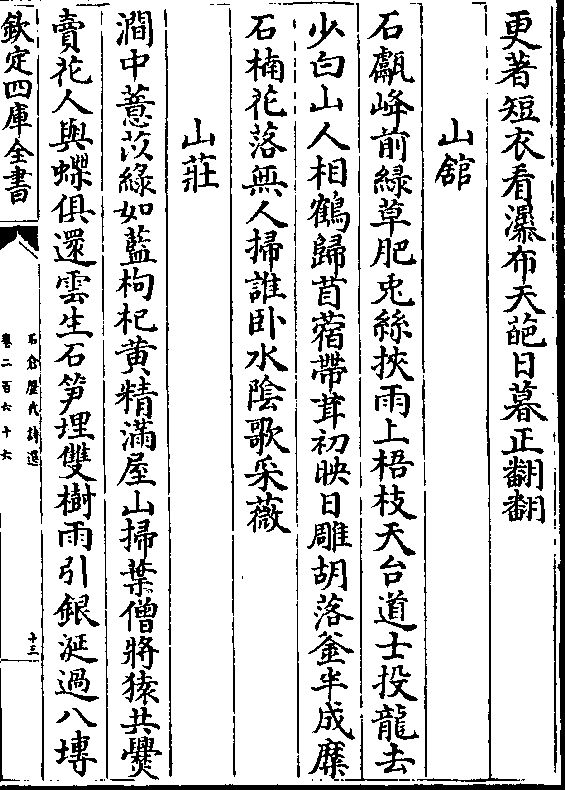 更著短衣看瀑布天葩日暮正翻翻
山舘
石甗峰前緑草肥兎絲挾雨上梧枝天台道士投龍去
少白山人相鶴歸苜蓿帶茸初映日雕胡落釜半成糜
石楠花落無人掃誰卧水陰歌采薇
山莊
澗中薏苡緑如藍枸杞黄精滿屋山掃葉僧將猿共爨
賣花人與蝶俱還雲生石笋埋雙樹雨引銀涎過八塼
欽定四庫全書
石倉歴代詩選
卷二百六十六
十三